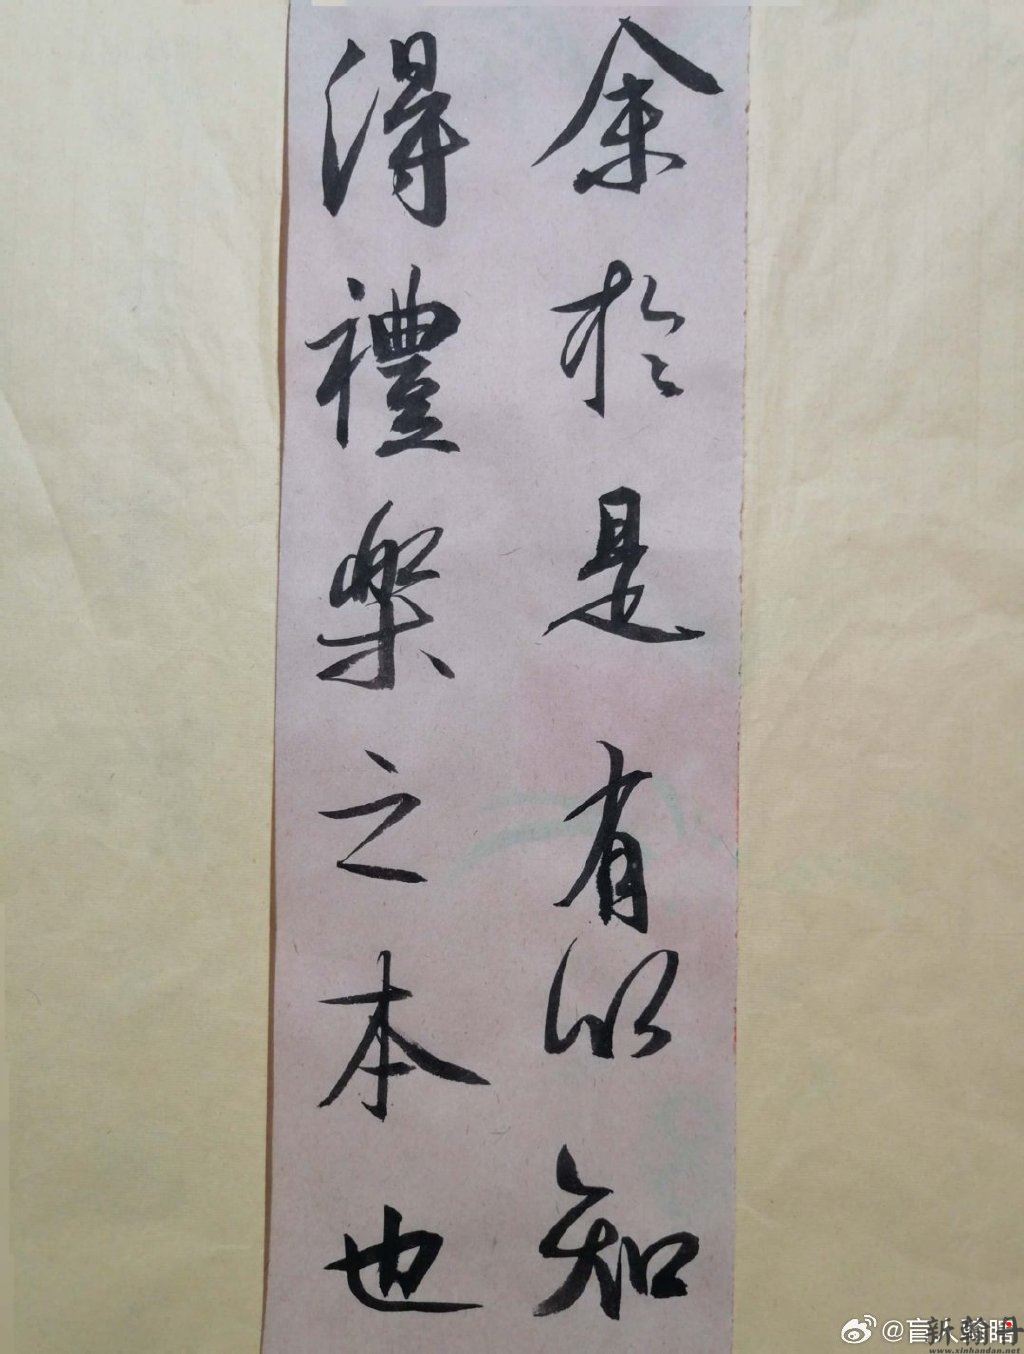 余於是有以知
得禮樂之本也
www.xinhandan.net